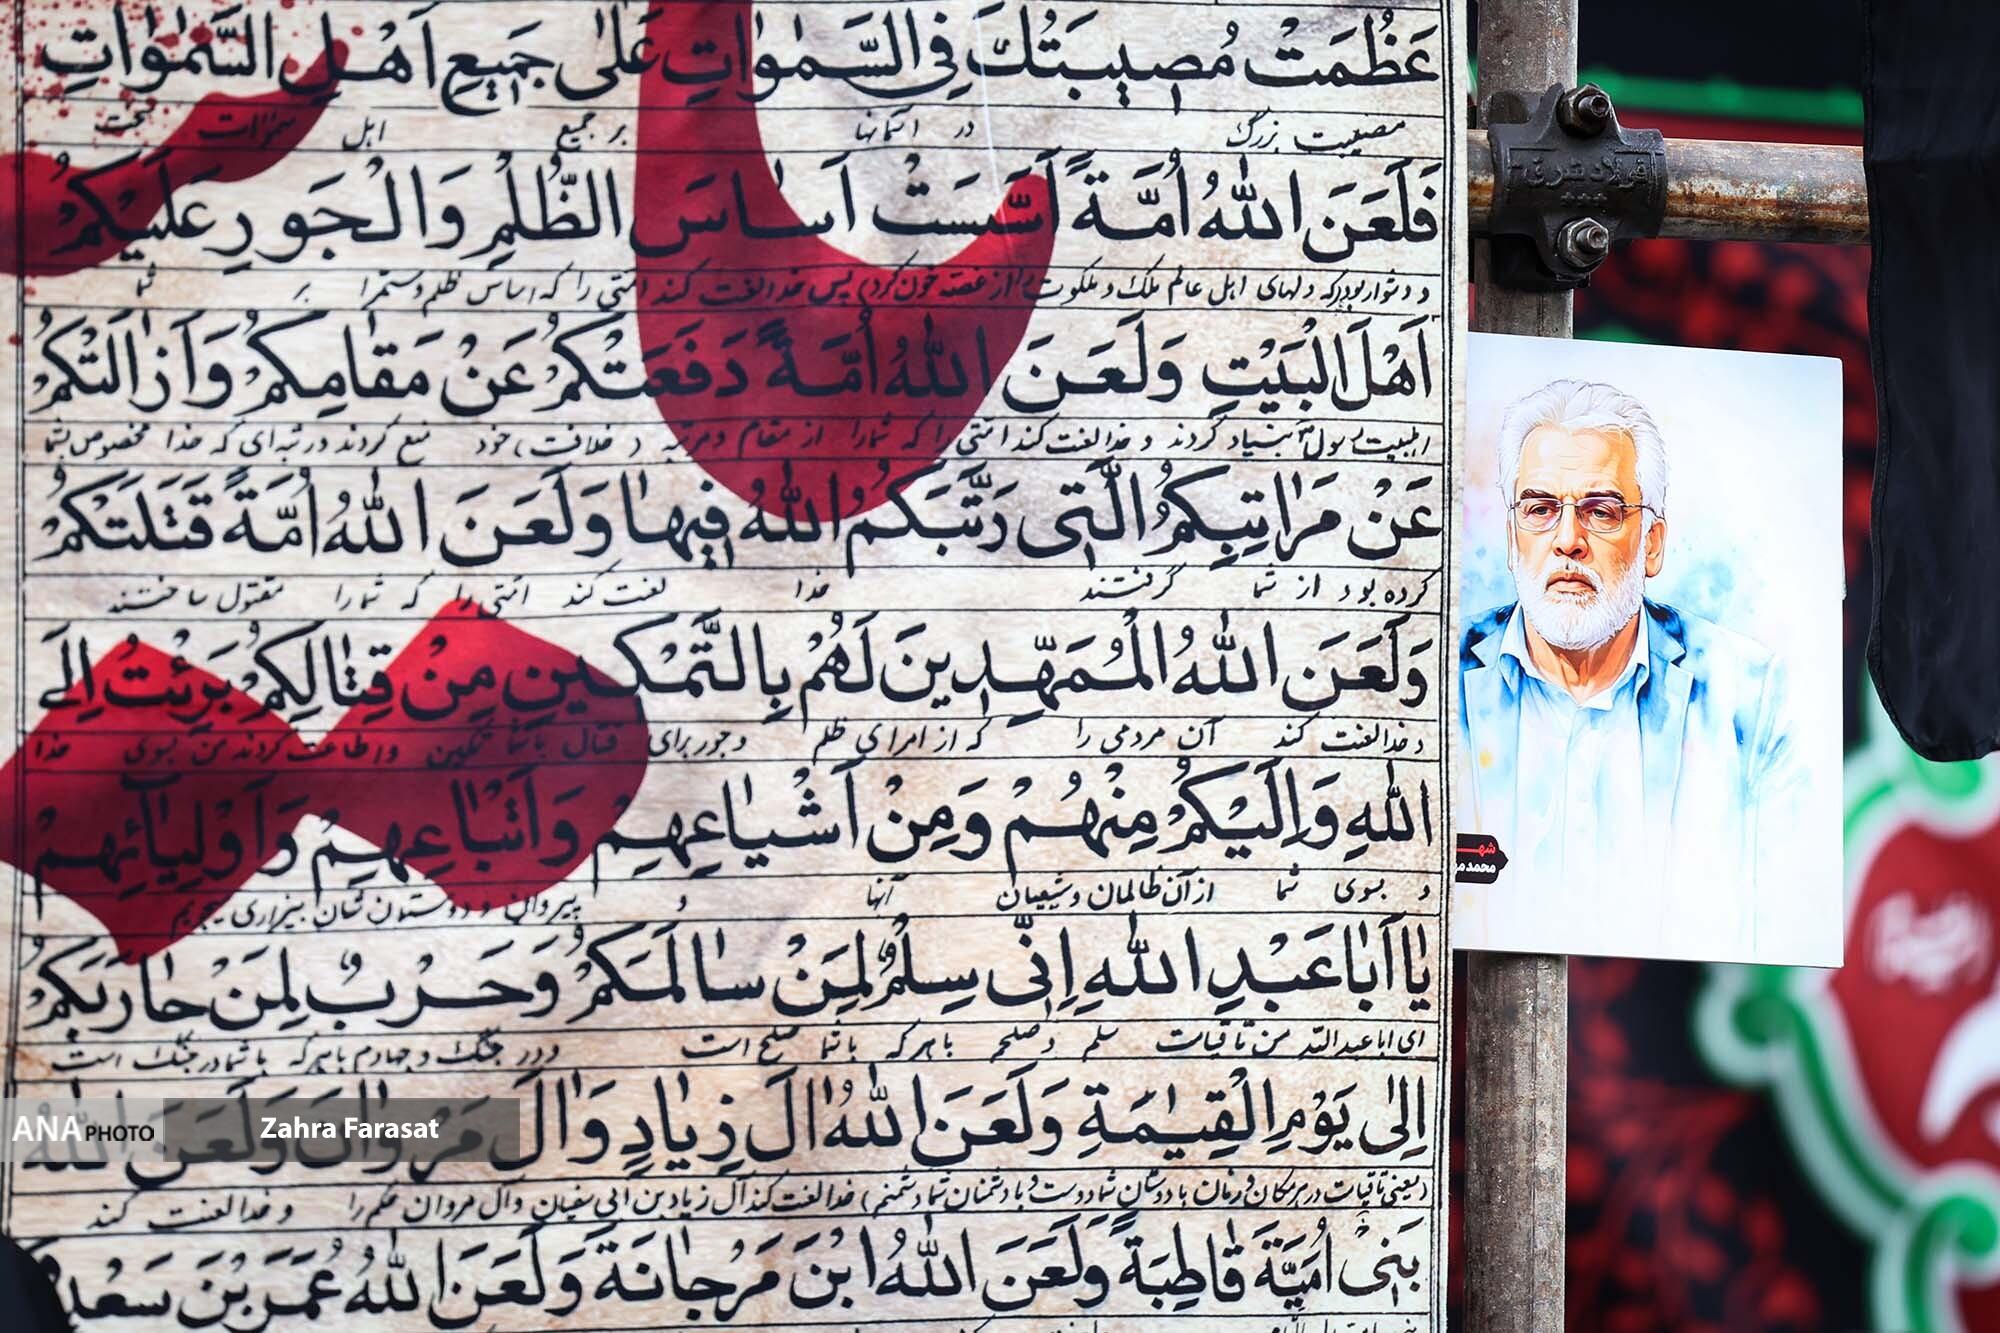 عَظُمَتْ مُصیبَتُكَ فِی السَّمٰوٰاتِ عَلٰی جَمیٖعِ اَهْلِ السَّمٰوٰاتِ
مصیبت بزرگ در آسمانها بر جمیع اهل سموات سخت
فَلَعَنَ اللّٰهُ اُمَّةً اَسَّسَتْ اَسٰاسَ الظُّلْمِ وَالْجَوْرِ عَلَیْكُمْ
و دشوار بود که دلهای اهل عالم ملک و ملکوت از غصه خون کرد) پس خدا لعنت کند امتی را که اساس ظلم و ستم را بر شما
اَهْلَ الْبَیْتِ وَلَعَنَ اللّٰهُ اُمَّةً دَفَعَتْكُمْ عَنْ مَقٰامِكُمْ وَاَزٰالَتْكُمْ
اهلبیت رسول بنیاد کردند و خدا لعنت کند امتی را که شما را از مقام و مرتبه (خلافت) خود منع کردند و رتبه‌ای که خدا مخصوص بشما
عَنْ مَرٰاتِبِكُمُ الَّتی رَتَّبَكُمُ اللّٰهُ فیٖهٰا وَلَعَنَ اللّٰهُ اُمَّةً قَتَلَتْكُمْ
کرده بود از شما گرفتند خدا لعنت کند امتی را که شما را مقتول ساختند
وَلَعَنَ اللّٰهُ الْمُمَهِّدیٖنَ لَهُمْ بِالتَّمْكیٖنِ مِنْ قِتٰالِكُمْ بَرِئْتُ اِلَی
و خدا لعنت کند آن مردمی را که از امرای ظلم و جور برای قتال با شما تمکین و اطاعت کردند من بسوی خدا
اللّٰهِ وَاِلَیْكُمْ مِنْهُمْ وَمِنْ اَشْیٰاعِهِمْ وَاَتْبٰاعِهِمْ وَاَوْلِیٰائِهِمْ
و بسوی شما از آن ظالمان و شیعیان آنها و پیروان و دوستان شان بیزاری میجویم
یٰا اَبٰا عَبْدِ اللّٰهِ اِنّی سِلْمٌ لِمَنْ سٰالَمَكُمْ وَحَرْبٌ لِمَنْ حٰارَبَكُمْ
ای ابا عبد الله من تا قیامت سلم و صلحم با هر که با شما صلح است و در جنگ و جهادم با هر که با شما در جنگ است
اِلٰی یَوْمِ الْقِیٰمَةِ وَلَعَنَ اللّٰهُ اٰلَ زِیٰادٍ وَاٰلَ مَرْوٰانَ وَلَعَنَ اللّٰهُ
(یعنی تا قیامت در هر مکان و زمان با دوستان شما دوست و با دشمنان شما دشمنم) خدا لعنت کند آل زیاد بن ابی سفیان و آل مروان حکم را و خدا لعنت کند
بَنی اُمَیَّةَ قٰاطِبَةً وَلَعَنَ اللّٰهُ ابْنَ مَرْجٰانَةَ وَلَعَنَ اللّٰهُ عُمَرَ بْنَ سَعْدٍ
فولاد شرق
شهـ
محمد مـ
ANA PHOTO
Zahra Farasat